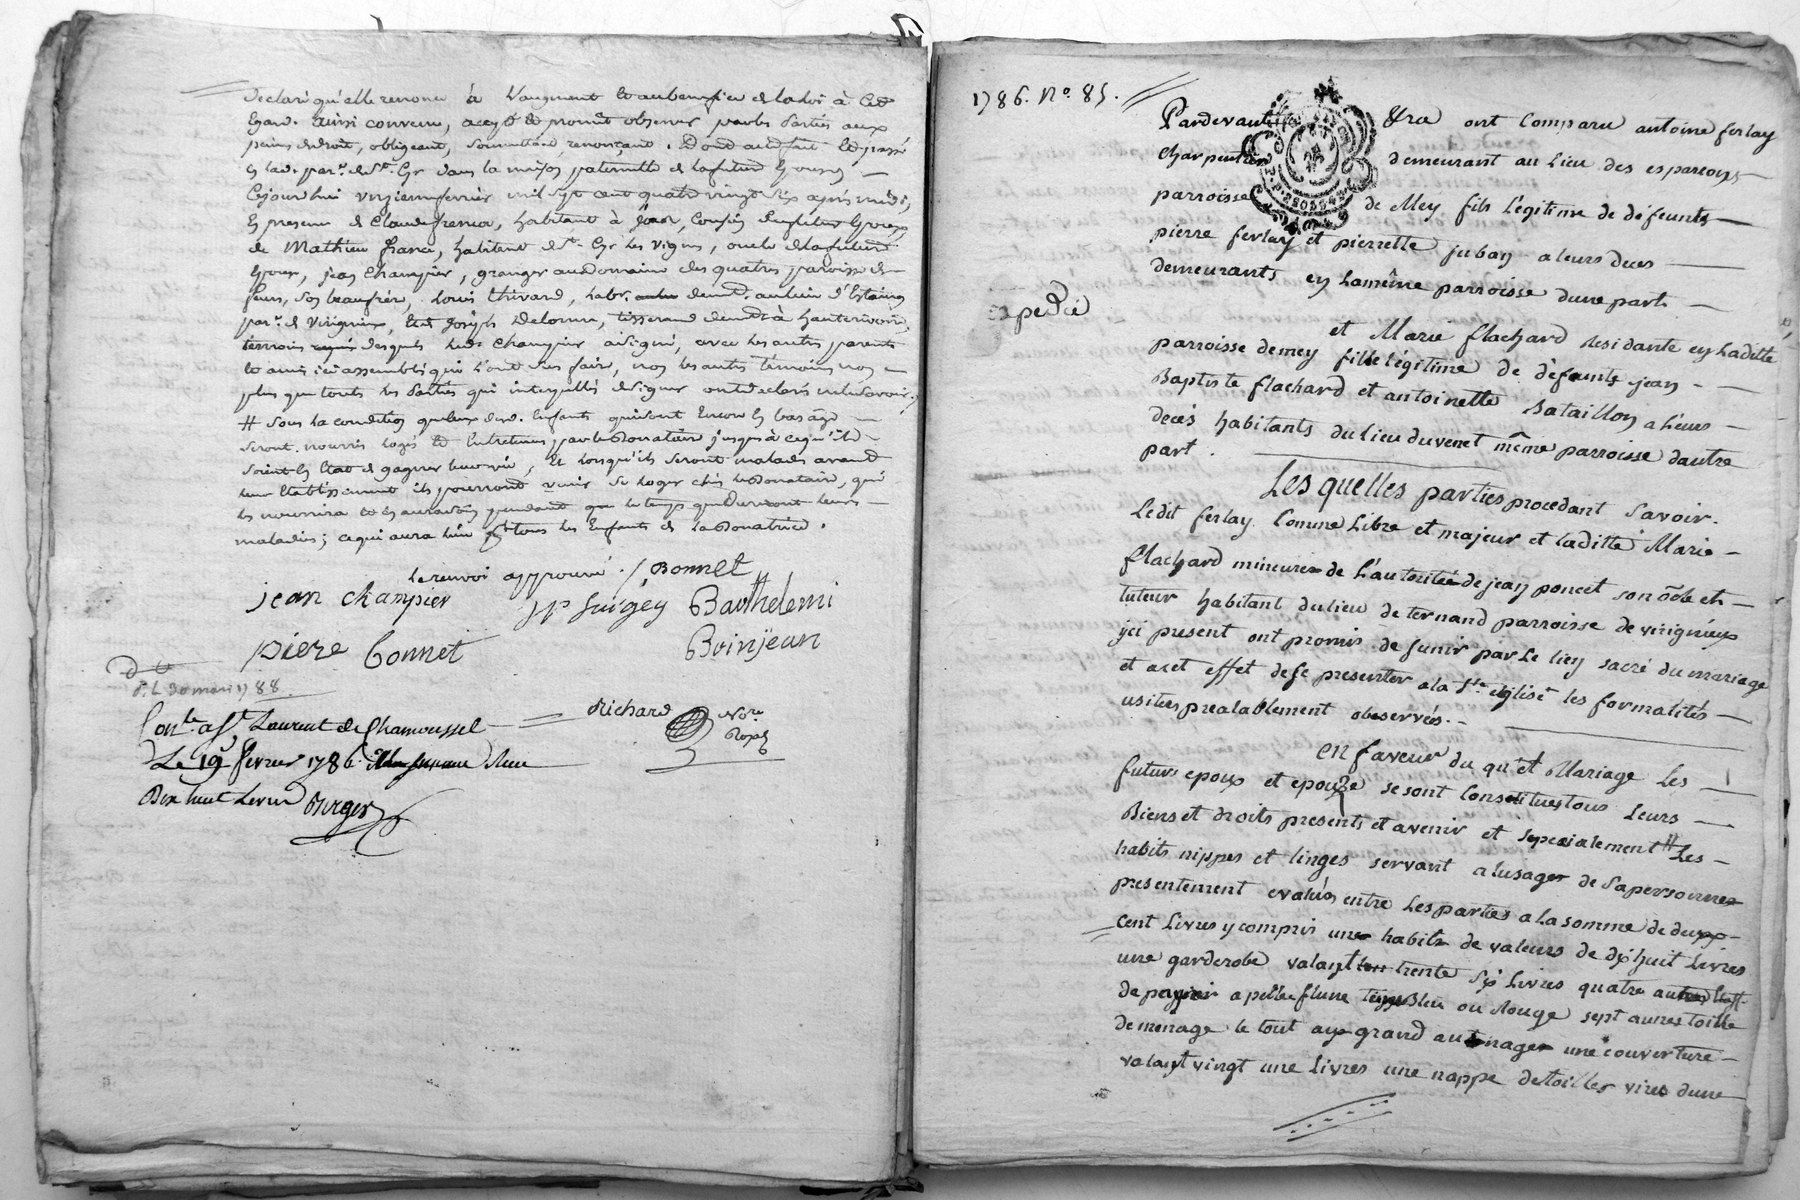 declaré qu'elle renonce à l'augment et au benefice de la loi à cet
egard. ainsi convenu, accepté et promit observer par les parties aux
peines de droit, obligeant, soumettant, renonçant. Dont acte fait et passé
en lad. par.e de St. Cyr dans la maison paternelle de la future Epouse
Cejourd'hui vingt fevrier mil sept cent quatre vingt six après midi,
En presence de Claude france, habitant à cousin du futur Epoux
de Mathieu france, habitant de St. Cyr les vignes, oncle de la future
Epouse, jean Champier, granger au domaine des quatres paroisse de
feurs, son beaufrère, Louis thivard, habt. demt. au lieu d'Estaing
par.e de Virignieux, Et de Joseph Delorme, tisserand demt. à hauterivoire,
temoins desquels led. Champier a signé, avec les autres parents
et amis ici assemblés qui l'ont sçu faire, non les autres témoins non
plus que toutes les parties qui interpellés de signer ont declaré ne le savoir./.
# sous la condition que ceux desd. Enfants qui sont Encore En bas âge
seront nourris logés et Entretenus par le Donataire jusques à ce qu'ils
soient En Etat de gagner leur vie, Et lorsqu'ils seront malades avant
leur Etablissement ils pourront venir se loger chés le Donataire, qui
les nourrira et En aura soin pendant le temps que dureront leurs
maladies; ce qui aura lieu pr. tous les Enfants de la Donatrice.
le renvoi approuvé. / Bonnet
jean champier Barthelemi
piere bonnet Boinjean
30 mars 1788
Cont.le a St. Laurent de Chamousset Richard No.re Royal
Le 19 fevrier 1786. Reçu
Dix huit Livres
1786. No. 85.
Pardevant ont Comparu antoine ferlay
Charpentier demeurant au Lieu des esparcons
parroisse de Mey fils Légitime de déffeunts
pierre ferlay et pierrette jubay a leurs deces
demeurants en la même parroisse dune part.
expedié
et Marie flachard residante en laditte
parroisse de mey fille légitime de défeunts jean
Baptiste flachard et antoinette bataillon a Leurs
decés habitants du lieu du venet même parroisse dautre
part.
Les quelles parties procedant Savoir.
Ledit ferlay Comme Libre et majeur et laditte Marie
flachard mineure de l'autorité de jean poncet son oncle et
tuteur habitant du lieu de ternand parroisse de virignieux
ici present ont promis de sunir par Le lien sacré du mariage
et acet effet de se presenter a la Ste. église les formalités
usitées prealablement observées.
en faveur du qu'el Mariage Les
futurs epoux et epouse se sont Constitués tous Leurs
Biens et droits presents et avenir et sepecialement # Les
habits nippes et linges servant a lusager de sa personne
presentement evalués entre Les parties a la somme de deux
cent Livres y compris une habits de valeurs de dix huit Livres
une garderobe valant trente six Livres quatre
de apellée flune bleu ou Rouge sept aunes toille
de menage le tout aux grand au
une couverture
valant vingt une Livres une nappe de toilles dune